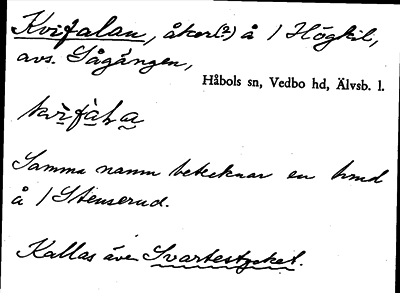 Kvifalan, åker(?) å 1 Högkil,
avs. Sågången,
Håbols sn, Vedbo hd, Älvsb. l.
kvìfàLa
Samma namn betecknar en
å 1 Stenserud.
Kallas även Svartestycket.